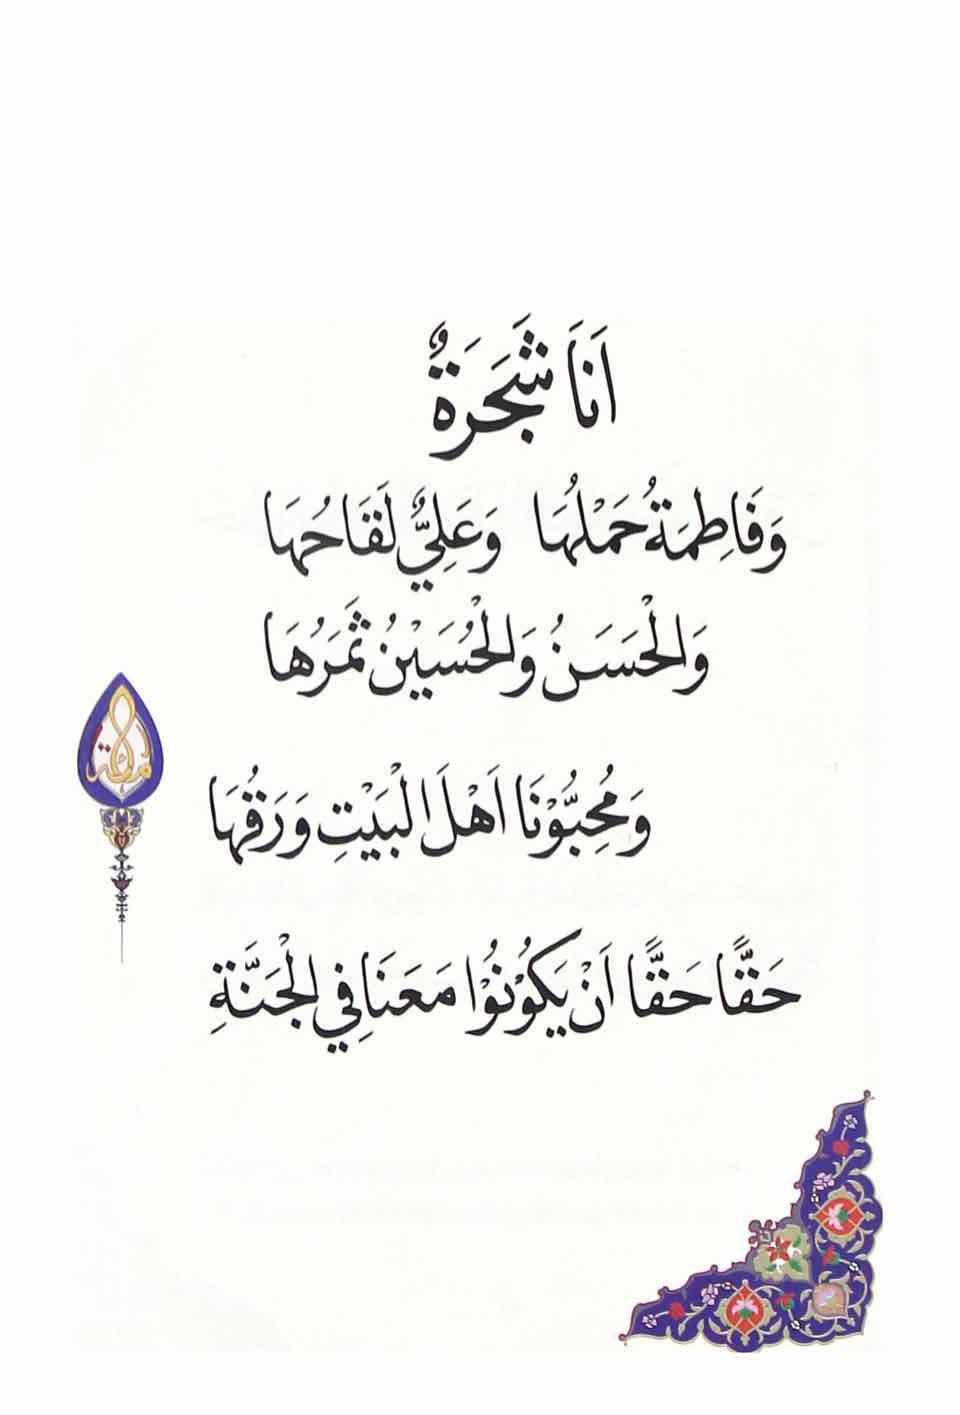 اَنَا شَجَرَةٌ
وَفَاطِمَةُ حَمْلُهَا وَعَلِيٌّ لَقَاحُهَا
وَالْحَسَنُ وَالْحُسَيْنُ ثَمَرُهَا
وَمُحِبُّوْنَا اَهْلَ الْبَيْتِ وَرَقُهَا
حَقًّا حَقًّا اَنْ يَكُوْنُوْا مَعَنَا فِي الْجَنَّةِ